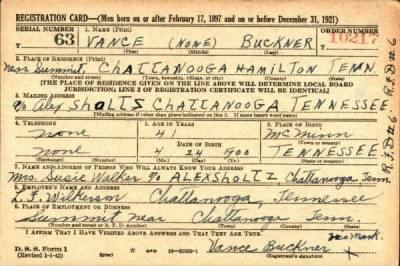 REGISTRATION CARD—(Men born on or after February 17, 1897 and on or before December 31, 1921)
SERIAL NUMBER 1. NAME (Print) ORDER NUMBER
63 VANCE (NONE) BUCKNER 10217
(First) (Middle) (Last)
2. PLACE OF RESIDENCE (Print)
near Summit CHATTANOOGA HAMILTON TENN.
(Number and street) (Town, township, village, or city) (County) (State)
[THE PLACE OF RESIDENCE GIVEN ON THE LINE ABOVE WILL DETERMINE LOCAL BOARD
JURISDICTION; LINE 2 OF REGISTRATION CERTIFICATE WILL BE IDENTICAL]
3. MAILING ADDRESS
% Alex SHOLTS CHATTANOOGA TENNESSEE
[Mailing address if other than place indicated on line 2. If same insert word same]
4. TELEPHONE 5. AGE IN YEARS 6. PLACE OF BIRTH
none 41 McMinn
DATE OF BIRTH (Town or county)
none 4 24 1900 TENNESSEE
(Exchange) (Number) (Mo.) (Day) (Yr.) (State or country)
7. NAME AND ADDRESS OF PERSON WHO WILL ALWAYS KNOW YOUR ADDRESS
Mrs. Susie Walker % ALEX SHOLTZ, Chattanooga Tenn.
8. EMPLOYER'S NAME AND ADDRESS
L. F. Wilkerson Chattanooga, Tennessee
9. PLACE OF EMPLOYMENT OR BUSINESS
Summit near Chattanooga Tenn.
(Number and street or R. F. D. number) (Town) (County) (State)
I AFFIRM THAT I HAVE VERIFIED ABOVE ANSWERS AND THAT THEY ARE TRUE.
his Mark.
D. S. S. Form 1 Vance Buckner
(Revised 1-1-42) GPO x
(Registrant's signature)
R.F.D#6
R.F.D#6